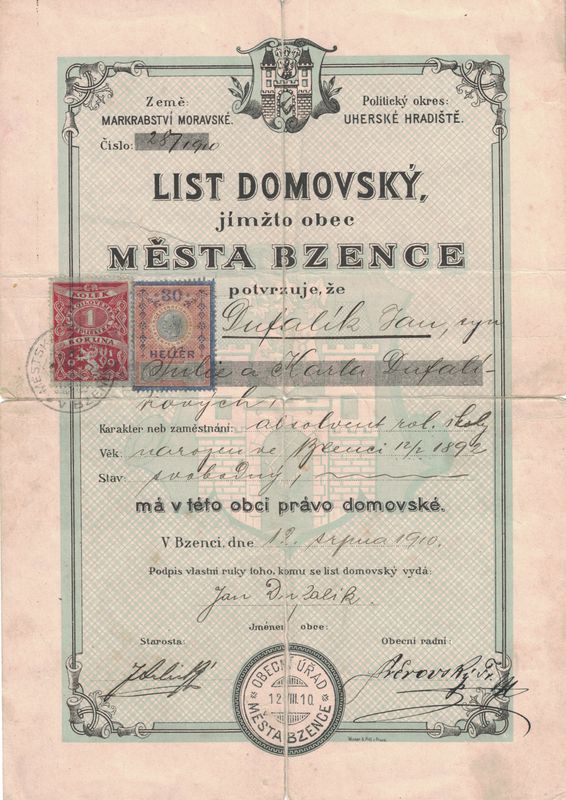 Země:
MARKRABSTVÍ MORAVSKÉ.
Číslo: 287/1910
Politický okres:
UHERSKÉ HRADIŠTĚ.
LIST DOMOVSKÝ,
jímžto obec
MĚSTA BZENCE
potvrzuje, že
KOLEK
1
KORUNA
30
HELLER
Dufalík Jan, syn
Julie a Karla Dufalí-
kových,
Karakter neb zaměstnání: absolvent rol. školy
Věk: narozen ve Bzenci 12/2 1892
Stav: svobodný,
má v této obci právo domovské.
V Bzenci, dne 12. srpna 1910.
Podpis vlastní ruky toho, komu se list domovský vydá:
Jan Dufalík.
Jménem obce:
Starosta:
Obecní radní:
OBECNÍ ÚŘAD
12 VIII. 10
MĚSTA BZENCE